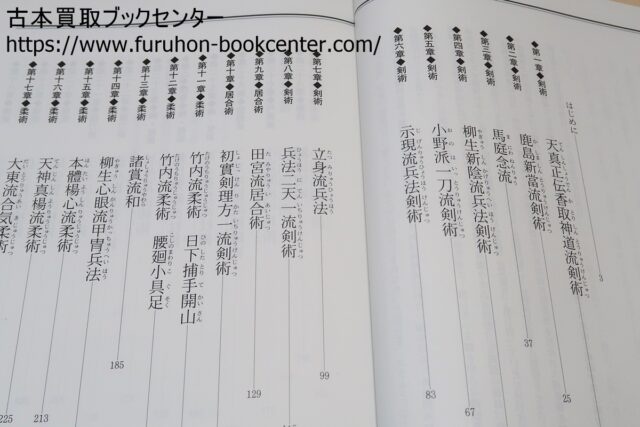 古本買取ブックセンター
https://www.furuhon-bookcenter.com/
はじめに 3
第一章◆剣術 天真正伝香取神道流剣術 25
第二章◆剣術 鹿島新當流剣術 37
第三章◆剣術 馬庭念流
第四章◆剣術 柳生新陰流兵法剣術 67
第五章◆剣術 小野派一刀流剣術 83
第六章◆剣術 示現流兵法剣術
第七章◆剣術 立身流兵法 99
第八章◆剣術 兵法二天一流剣術
第九章◆居合術 田宮流居合術 129
第十章◆居合術 初實剣理方一流剣術
第十一章◆柔術 竹内流柔術 日下捕手開山
第十二章◆柔術 竹内流柔術 腰廻小具足
第十三章◆柔術 諸賞流和
第十四章◆柔術 柳生心眼流甲冑兵法 185
第十五章◆柔術 本體楊心流柔術
第十六章◆柔術 天神真楊流柔術 213
第十七章◆柔術 大東流合気柔術 225